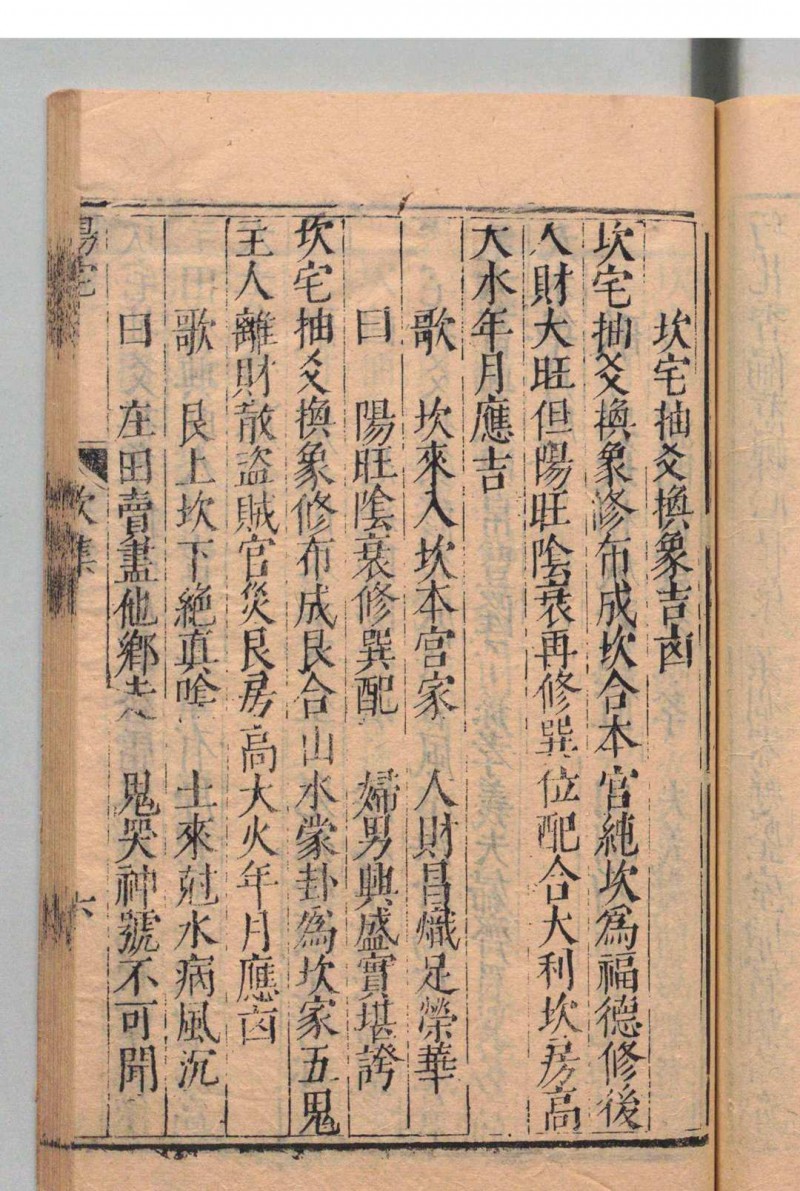 坎宅抽爻換象吉㐫
坎宅抽爻換象修布成坎合本宮純坎爲福德修後
人財大旺但陽旺陰衰再修巽位配合大利坎房高
大水年月應吉
歌　坎來入坎本宮家　人財昌熾足榮華
曰　陽旺陰衰修巽配　婦男興盛實堪誇
坎宅抽爻換象修布成艮合山水蒙卦爲坎家五鬼
主人離財散盜賊官災艮房高大火年月應㐫
歌　艮上坎下絶真　土來尅水病風沉
曰　庄田賣盡他鄉　鬼哭神號不可聞
陽宅　坎集　六